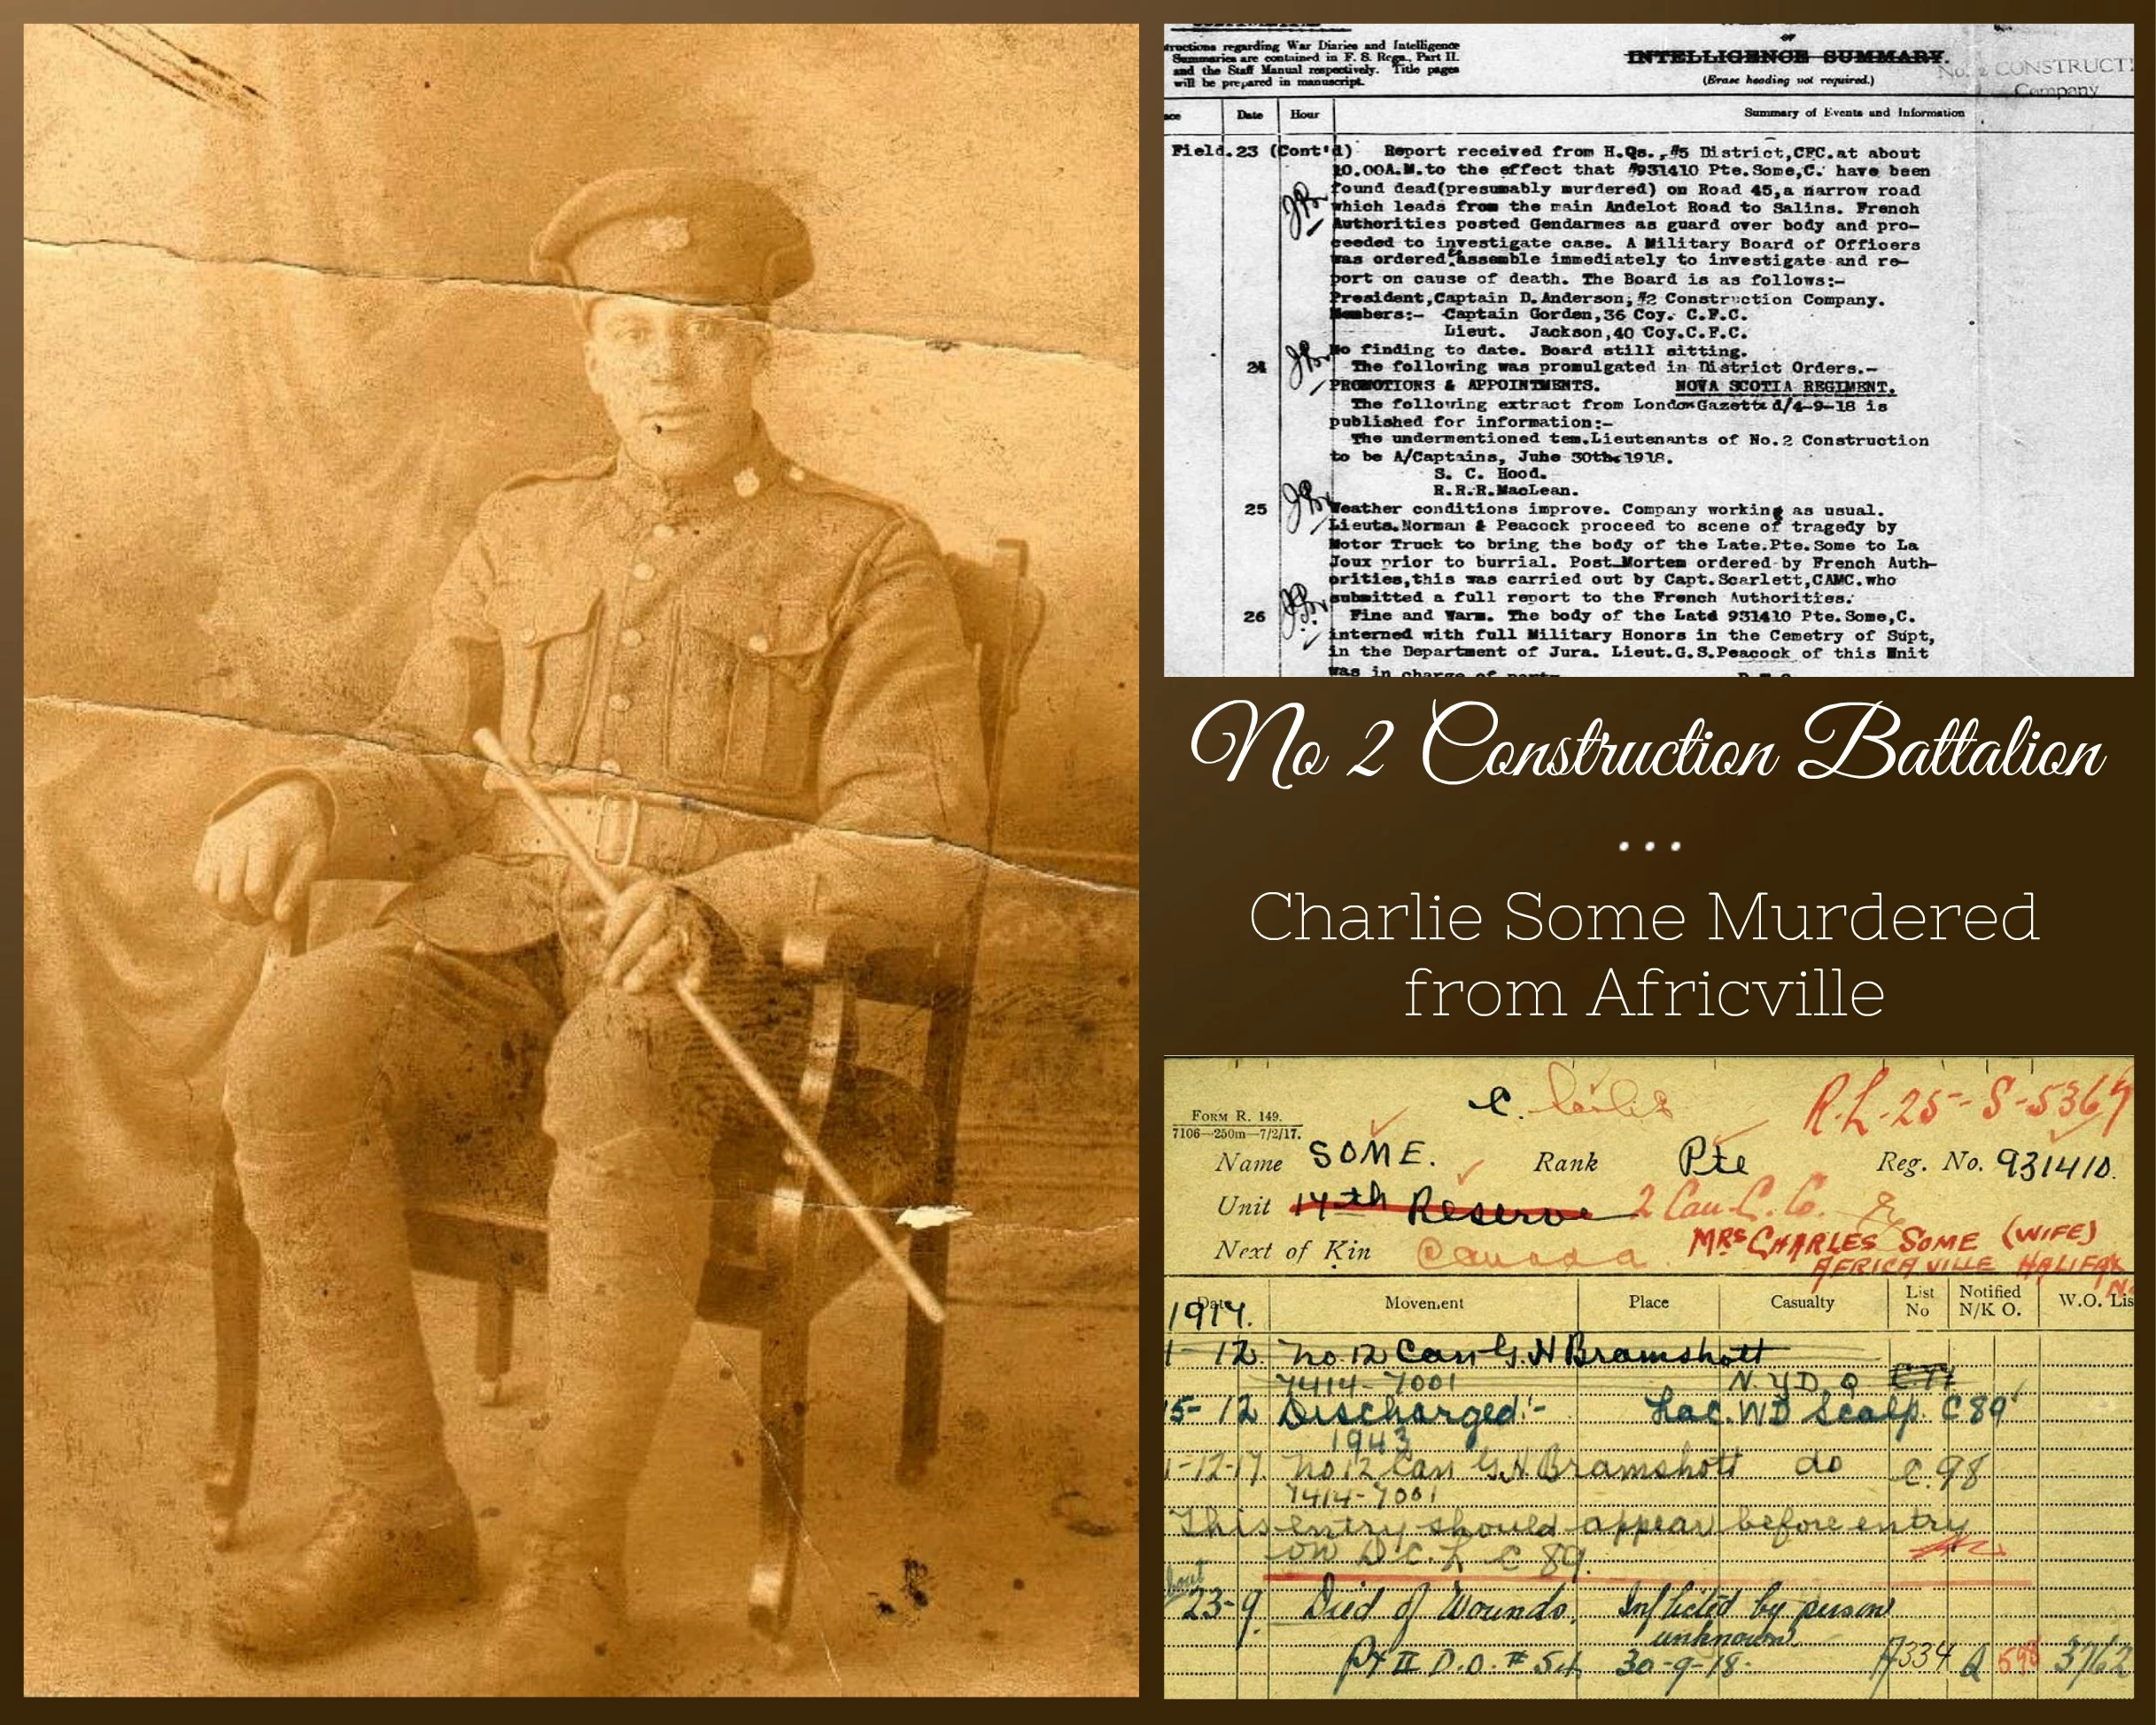 tructions regarding War Diaries and Intelligence
Summaries are contained in F. S. Regs., Part II.
and the Staff Manual respectively. Title pages
will be prepared in manuscript.
or
INTELLIGENCE SUMMARY.
(Erase heading not required.)
No. 2 CONSTRUCTI
Company
Date
Hour
Summary of Events and Information
Field.23 (Cont'd) Report received from H.Qs.,#5 District,CFC.at about
10.00A.M.to the effect that #931410 Pte.Some,C. have been
found dead(presumably murdered) on Road 45,a narrow road
which leads from the main Andelot Road to Salins. French
Authorities posted Gendarmes as guard over body and pro-
ceeded to investigate case. A Military Board of Officers
was ordered assemble immediately to investigate and re-
port on cause of death. The Board is as follows:-
President,Captain D.Anderson,#2 Construction Company.
Members:- Captain Gorden,36 Coy. C.F.C.
Lieut. Jackson,40 Coy.C.F.C.
No finding to date. Board still sitting.
24 The following was promulgated in District Orders.-
PROMOTIONS & APPOINTMENTS. NOVA SCOTIA REGIMENT.
The following extract from London Gazette d/4-9-18 is
published for information:-
The undermentioned tem.Lieutenants of No.2 Construction
to be A/Captains, June 30th.1918.
S. C. Hood.
R.R.R.MacLean.
25 Weather conditions improve. Company working as usual.
Lieuts.Norman & Peacock proceed to scene of tragedy by
Motor Truck to bring the body of the Late.Pte.Some to La
Joux prior to burrial. Post Mortem ordered by French Auth-
orities,this was carried out by Capt.Scarlett,CAMC.who
submitted a full report to the French Authorities.
26 Fine and Warm. The body of the Late 931410 Pte.Some,C.
interned with full Military Honors in the Cemetry of Supt,
in the Department of Jura. Lieut.G.S.Peacock of this Unit
was in charge of party.
No 2 Construction Battalion
...
Charlie Some Murdered
from Africville
C. Charlie
R.L-25-S-5367
FORM R. 149.
7106—250m—7/2/17.
Name SOME. Rank Pte Reg. No. 931410.
Unit 14th Reserve 2 Can. C. Co.
Next of Kin Canada MRS CHARLES SOME (WIFE)
AFRICAVILLE HALIFAX
N.
Date Movement Place Casualty List No Notified N/K O. W.O. Lis
1917.
1-12 No. 12 Can G.H Bramshott
7414-7001 N.Y.D. C.77
15-12 Discharged:- Lac. WD Scalp. C89
1943
1-12-17 No.12 Can G.H Bramshott do C.98
7414-7001
This entry should appear before entry
on D.C.L C 89.
about
23-9. Died of Wounds. Inflicted by person
unknown.
Pt II D.O. #54 30-9-18. A334 Q 598 3762